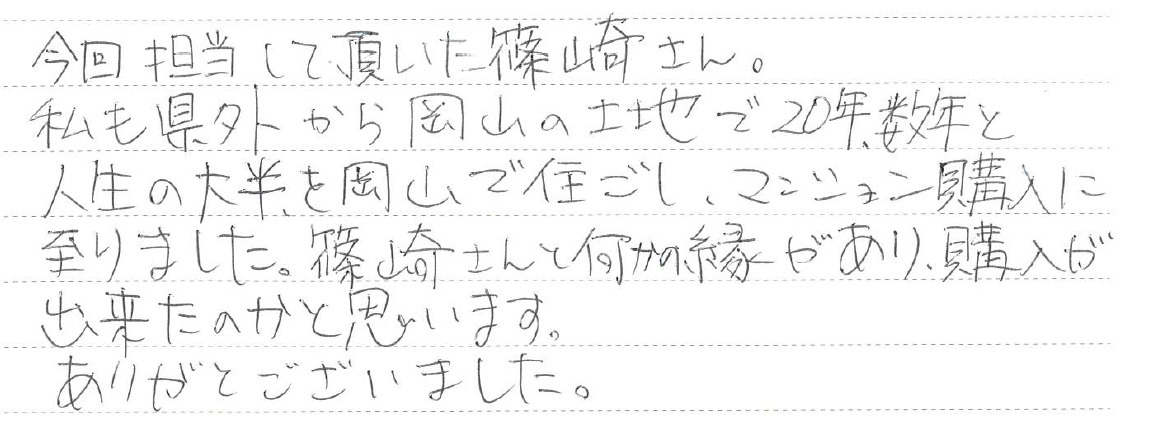 今回担当して頂いた篠崎さん。
私も県外から岡山の土地で20年数年と
人生の大半を岡山で住ごし、マンション購入に
至りました。篠崎さんと何かの縁があり、購入が
出来たのかと思います。
ありがとございました。